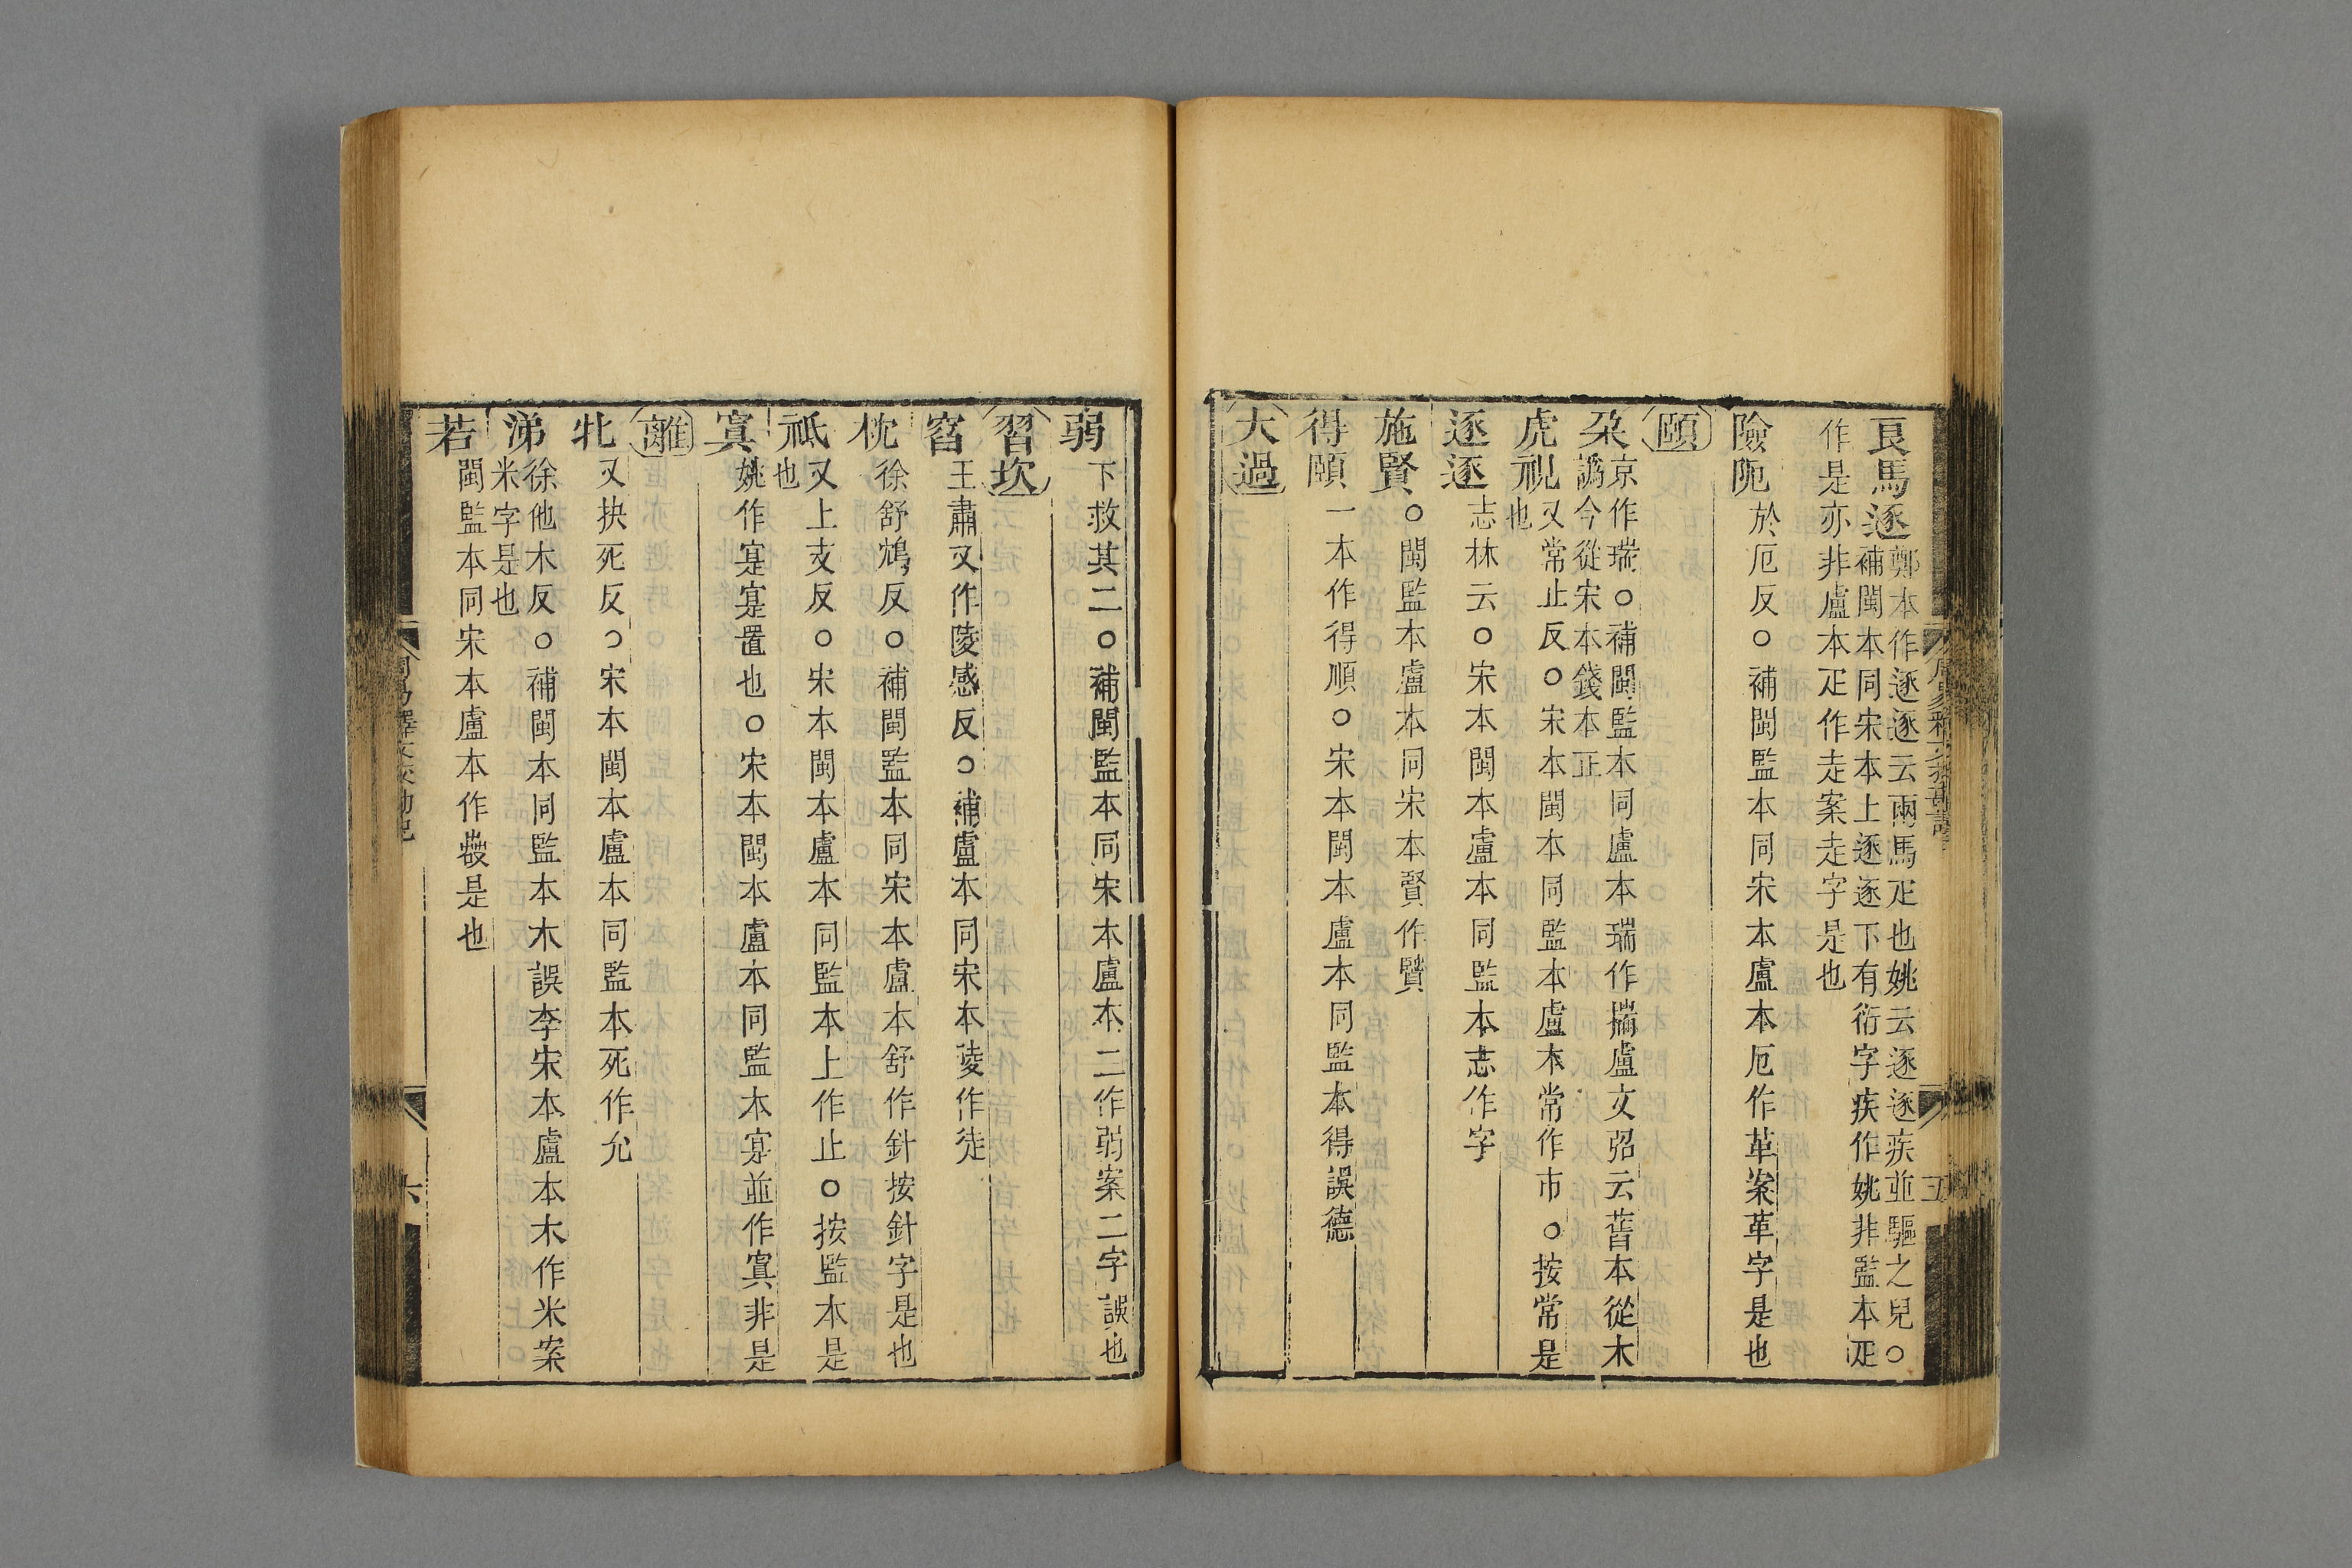 良馬逐鄭本作逐逐云兩馬疋也姚云逐逐疾並驅之皃○
補閩本同宋本上逐逐下有衍字疾作姚非監本疋
作是亦非盧本疋作走案走字是也
險阨於厄反○補閩監本同宋本盧本厄作革案革字是也
頤
朶京作瑞○補閩監本同盧本瑞作揣盧文弨云舊本從木
譌今從宋本錢本正
虎視又常止反○宋本閩本同監本盧本常作市○按常是
也
逐逐志林云○宋本閩本盧本同監本志作字
施賢○閩監本盧本同宋本賢作贒
得頤一本作得順○宋本閩本盧本同監本得誤德
大過
弱下救其二○補閩監本同宋本盧本二作弱案二字誤也
習坎
窞王肅又作陵感反○補盧本同宋本淩作徒
枕徐舒鴆反○補閩監本同宋本盧本舒作針按針字是也
祗又上支反○宋本閩本盧本同監本上作止○按監本是
也
寘姚作寔寔置也○宋本閩本盧本同監本寔並作寘非是
離
牝又抉死反○宋本閩本盧本同監本死作允
涕徐他木反○補閩本同監本木誤李宋本盧本木作米案
米字是也
若閩監本同宋本盧本作㸅是也
周易釋文校勘記
六